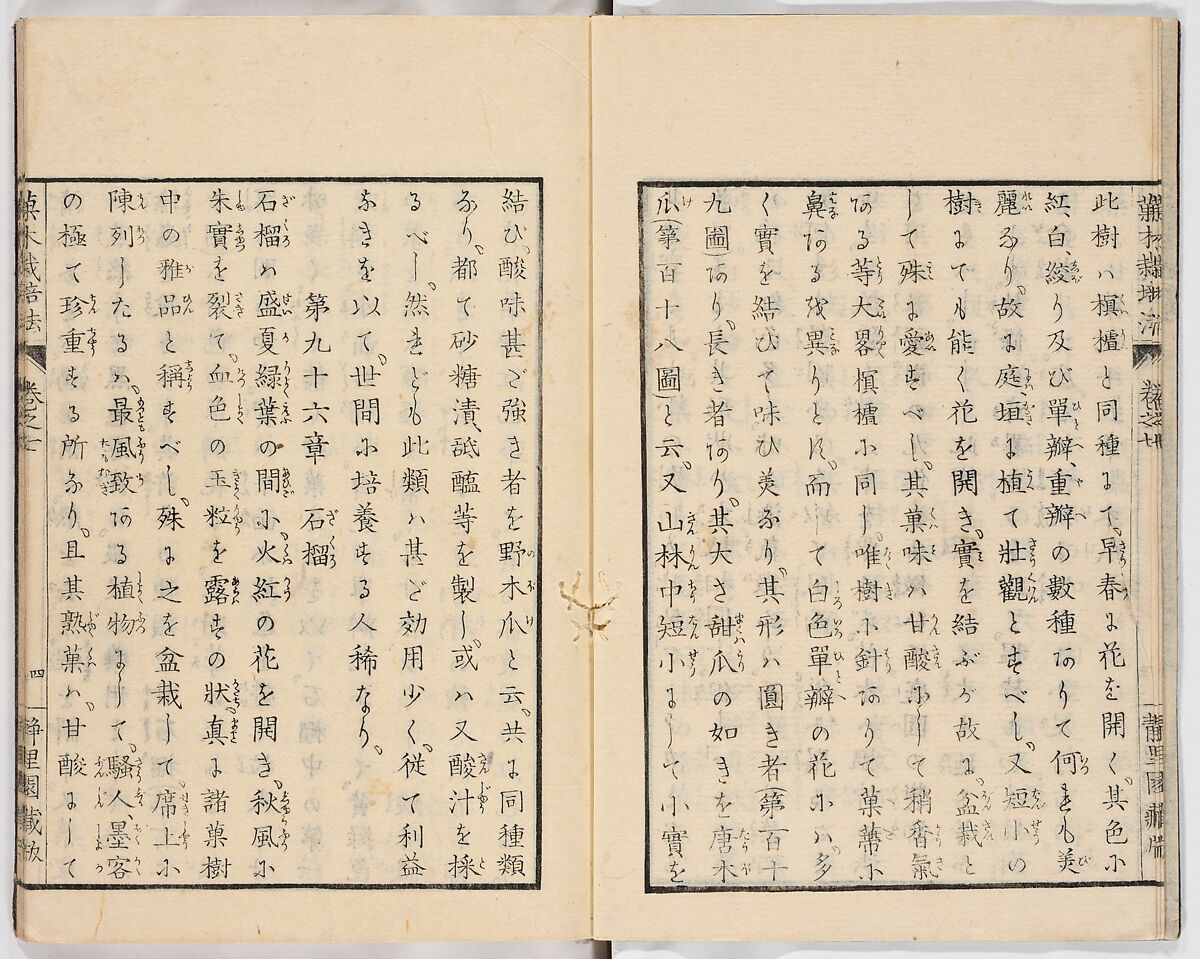 此樹ハ榠樝と同種にて、早春に花を開く、其色に
紅、白、絞り及び單瓣、重瓣の數種ありて何れも美
麗なり、故に庭垣に植て壯觀とすべし、又短小の
樹にても能く花を開き、實を結ぶが故に、盆栽と
して殊に愛すべし、其菓味ハ甘酸にして稍香氣
ある等大畧榠樝に同じ、唯樹に針ありて菓蔕に
鼻あるを異りとす、而して白色單瓣の花にハ、多
く實を結びて味ひ美なり、其形ハ圓き者(第百十
九圖)あり、長き者あり、其大さ甜瓜の如きを唐木
瓜(第百十八圖)と云、又山林中短小にして小實を
結び、酸味甚ど強き者を野木瓜と云、共に同種類
なり、都て砂糖漬、䑛醢等を製し、或ハ又酸汁を採
るべし、然れども此類ハ甚ど効用少く、従て利益
なきを以て、世間に培養する人稀なり、
第九十六章 石榴
石榴ハ盛夏緑葉の間に、火紅の花を開き、秋風に
朱實を裂て、血色の玉粒を露すの狀、真に諸菓樹
中の雅品と稱すべし、殊に之を盆栽して、席上に
陳列したるハ、最風致ある植物にして、騒人、墨客
の極て珍重する所なり、且其熟菓ハ、甘酸にして
菓木栽培法 卷之七 四 静里園藏版